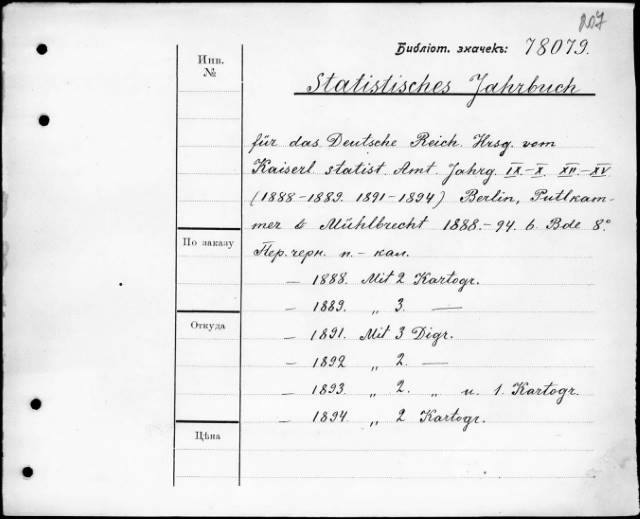 207
Библіот. значекъ: 78079.
Инв.
№
Statistisches Jahrbuch
für das Deutsche Reich. Hrsg. vom
Kaiserl statist. Amt. Jahrg. IX–X. XII–XV
(1888–1889. 1891–1894) Berlin, Puttkam-
mer & Mühlbrecht 1888.–94. 6. Bde 8°
По заказу
Пер. черн. п. – кал.
— 1888. Mit 2 Kartogr.
— 1889. „ 3. —
Откуда
— 1891. Mit 3 Digr.
— 1892 „ 2. —
— 1893 „ 2. „ u. 1. Kartogr.
— 1894. „ 2 Kartogr.
Цѣна